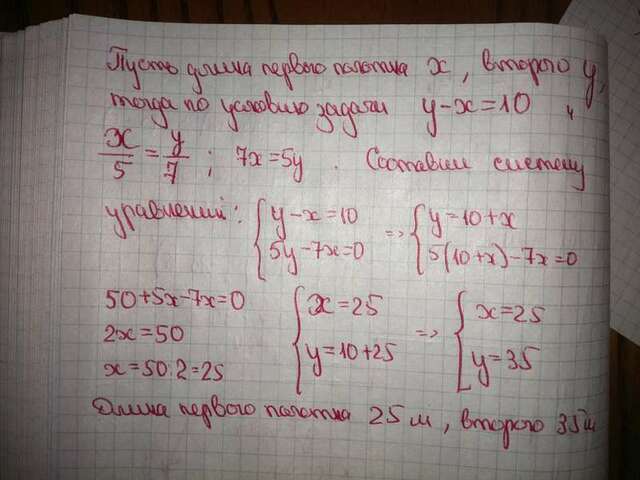 Пусть длина первого полотна x, второго y,
тогда по условию задачи y-x=10 и
x/5 = y/7 ; 7x=5y . Составим систему
уравнений: { y-x=10 5y-7x=0 => { y=10+x 5(10+x)-7x=0
50+5x-7x=0
2x=50
x=50:2=25
{ x=25 y=10+25 => { x=25 y=35
Длина первого полотна 25 м, второго 35 м